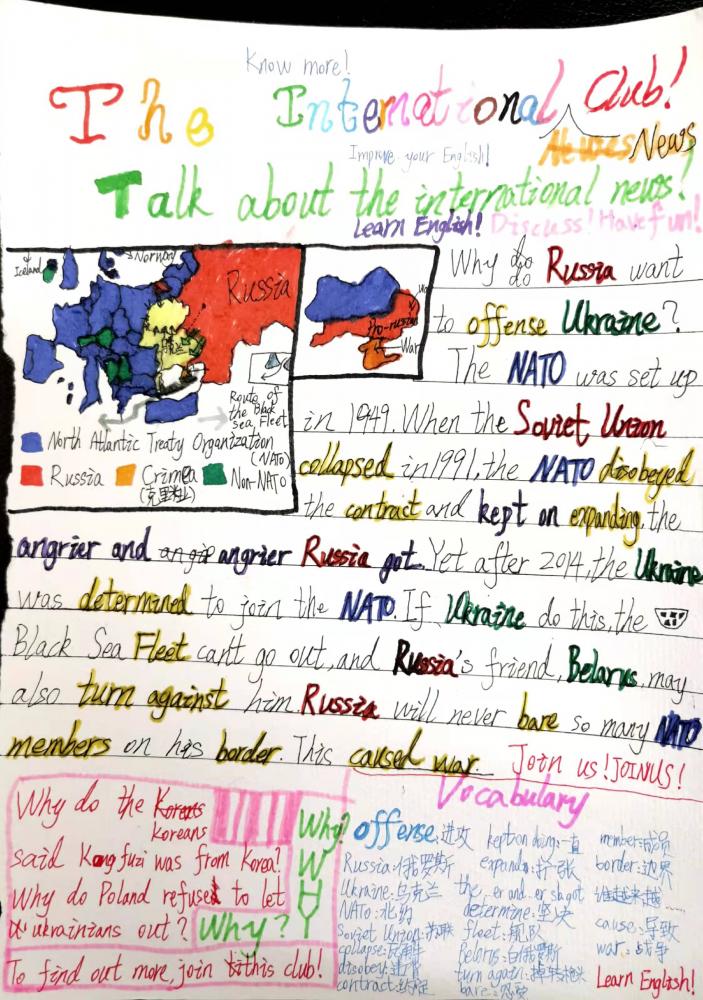 Know more!
The International Club!
News
Improve your English!
Talk about the international news!
Learn English! Discuss! Have fun!
Iceland
Norway
Russia
Route of
the Black
sea Fleet
North Atlantic Treaty Organization
(NATO)
Russia Crimea Non-NATO
(克里米亚)
Pro-russian
War
Why do Russia want
to offense Ukraine?
The NATO was set up
in 1949. When the Soviet Union
collapsed in 1991, the NATO disobeyed
the contract and kept on expanding, the
angrier and angrier Russia got. Yet after 2014, the Ukraine
was determined to join the NATO. If Ukraine do this, the
Black Sea Fleet can't go out, and Russia's friend, Belarus, may
also turn against him. Russia will never bare so many NATO
members on his border. This caused war. Join us! JOIN US!
Why do the Koreans
koreans
said Kong fuzi was from Korea?
Why do Poland refuse to let
ukrainians out? Why?
To find out more, join this club!
Why?
W
H
Y
Vocabulary
offense:进攻
Russia:俄罗斯
Ukraine:乌克兰
NATO:北约
Soviet Union:苏联
collapse:瓦解
disobey:违背
contract:约定
kept on doing:一直
expand:扩张
the...er and...er sb got
determine:坚决
fleet:舰队
Belorus:白俄罗斯
turn again:掉转枪头
bare:忍受
member:成员
border:边界
谁越来越
cause:导致
war:战争
Learn English!